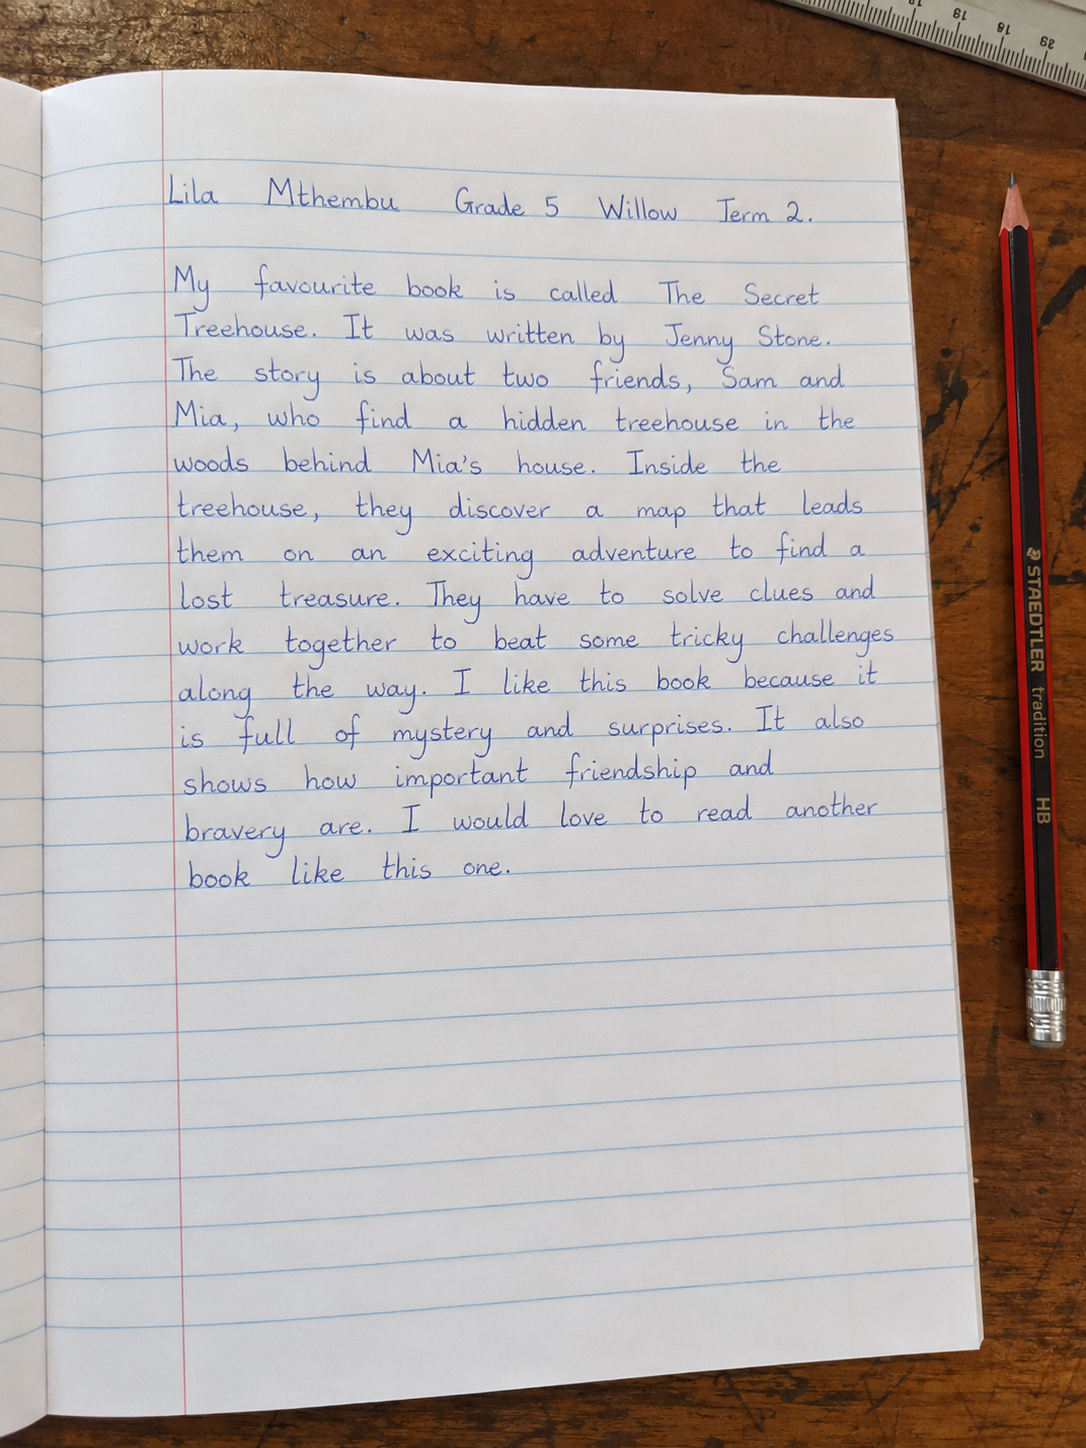 Lila Mthembu Grade 5 Willow Term 2.
My favourite book is called The Secret
Treehouse. It was written by Jenny Stone.
The story is about two friends, Sam and
Mia, who find a hidden treehouse in the
woods behind Mia's house. Inside the
treehouse, they discover a map that leads
them on an exciting adventure to find a
lost treasure. They have to solve clues and
work together to beat some tricky challenges
along the way. I like this book because it
is full of mystery and surprises. It also
shows how important friendship and
bravery are. I would love to read another
book like this one.
STAEDTLER tradition HB